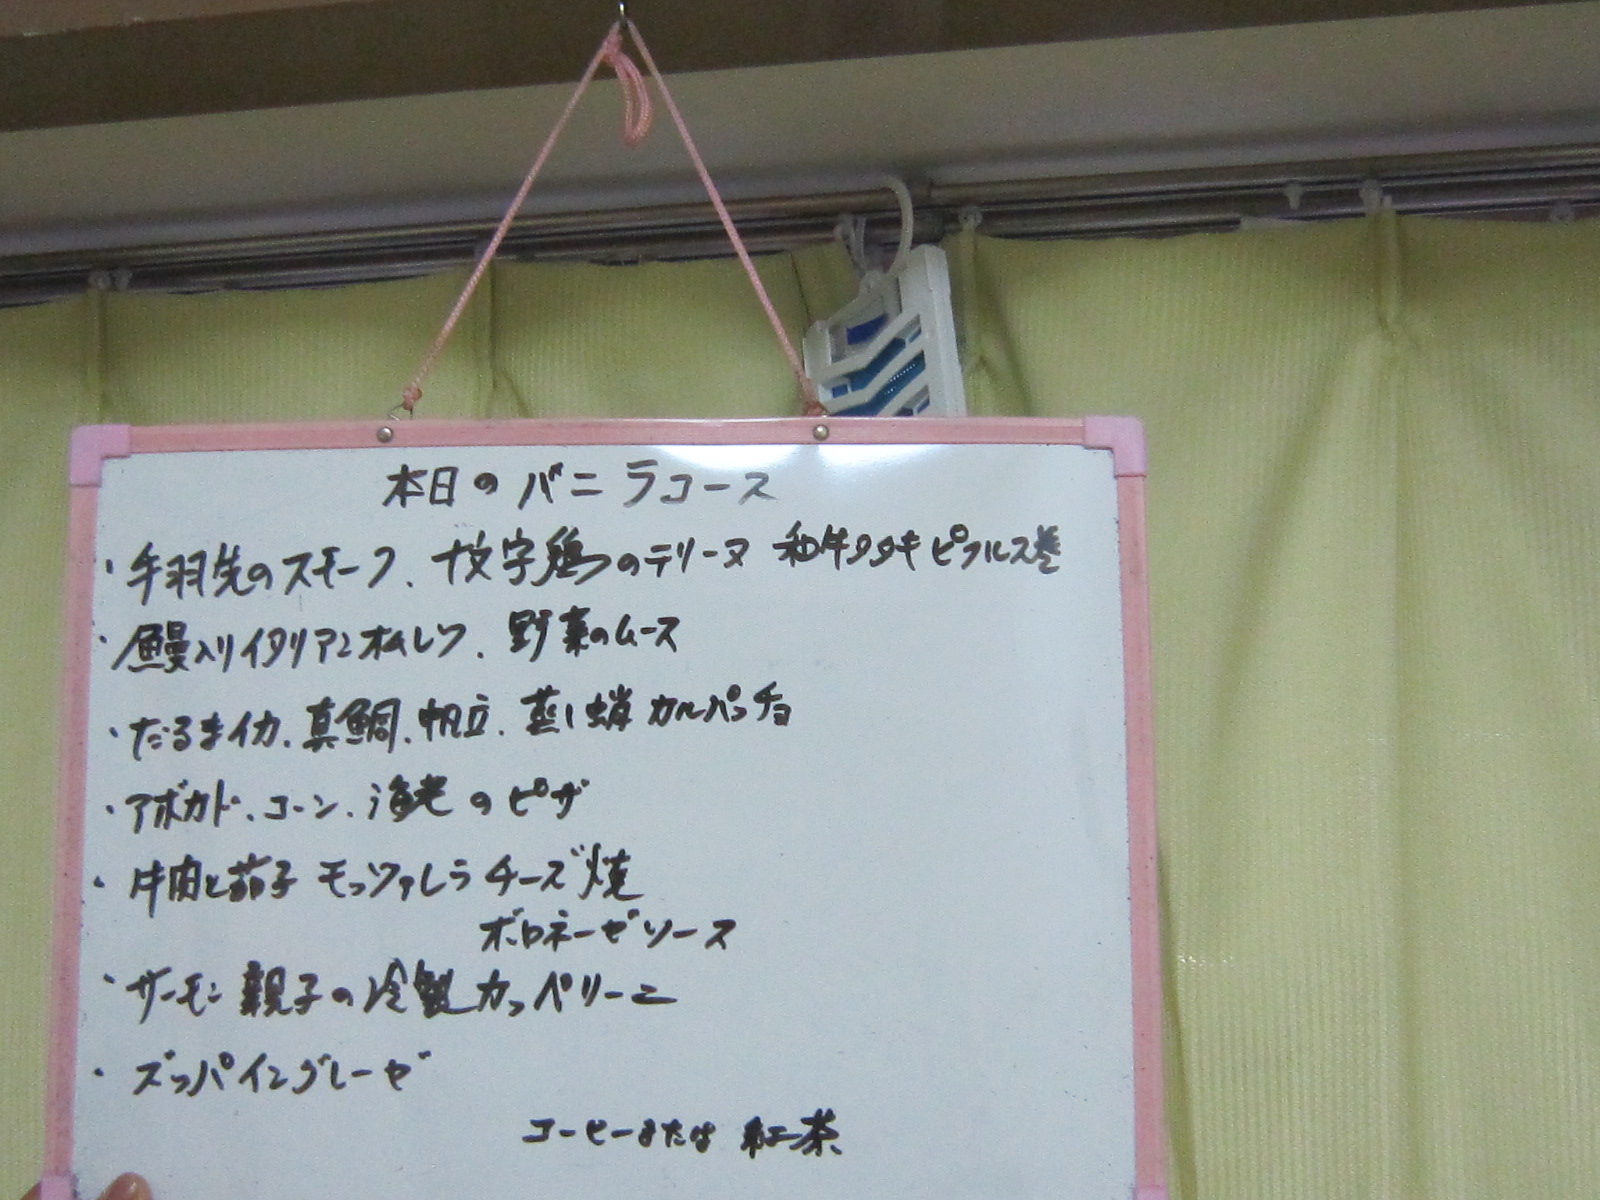 本日のバニラコース
・手羽先のスモーク、十文字鶏のテリーヌ 和牛タタキピクルス巻
・鰻入りイタリアンオムレツ、野菜のムース
・だるまイカ、真鯛、帆立、蒸し蛸カルパッチョ
・アボカド、コーン、海老のピザ
・牛肉と茄子 モッツァレラチーズ焼
ボロネーゼソース
・サーモン親子の冷製カッペリーニ
・ズッパイングレーゼ
コーヒーまたは紅茶